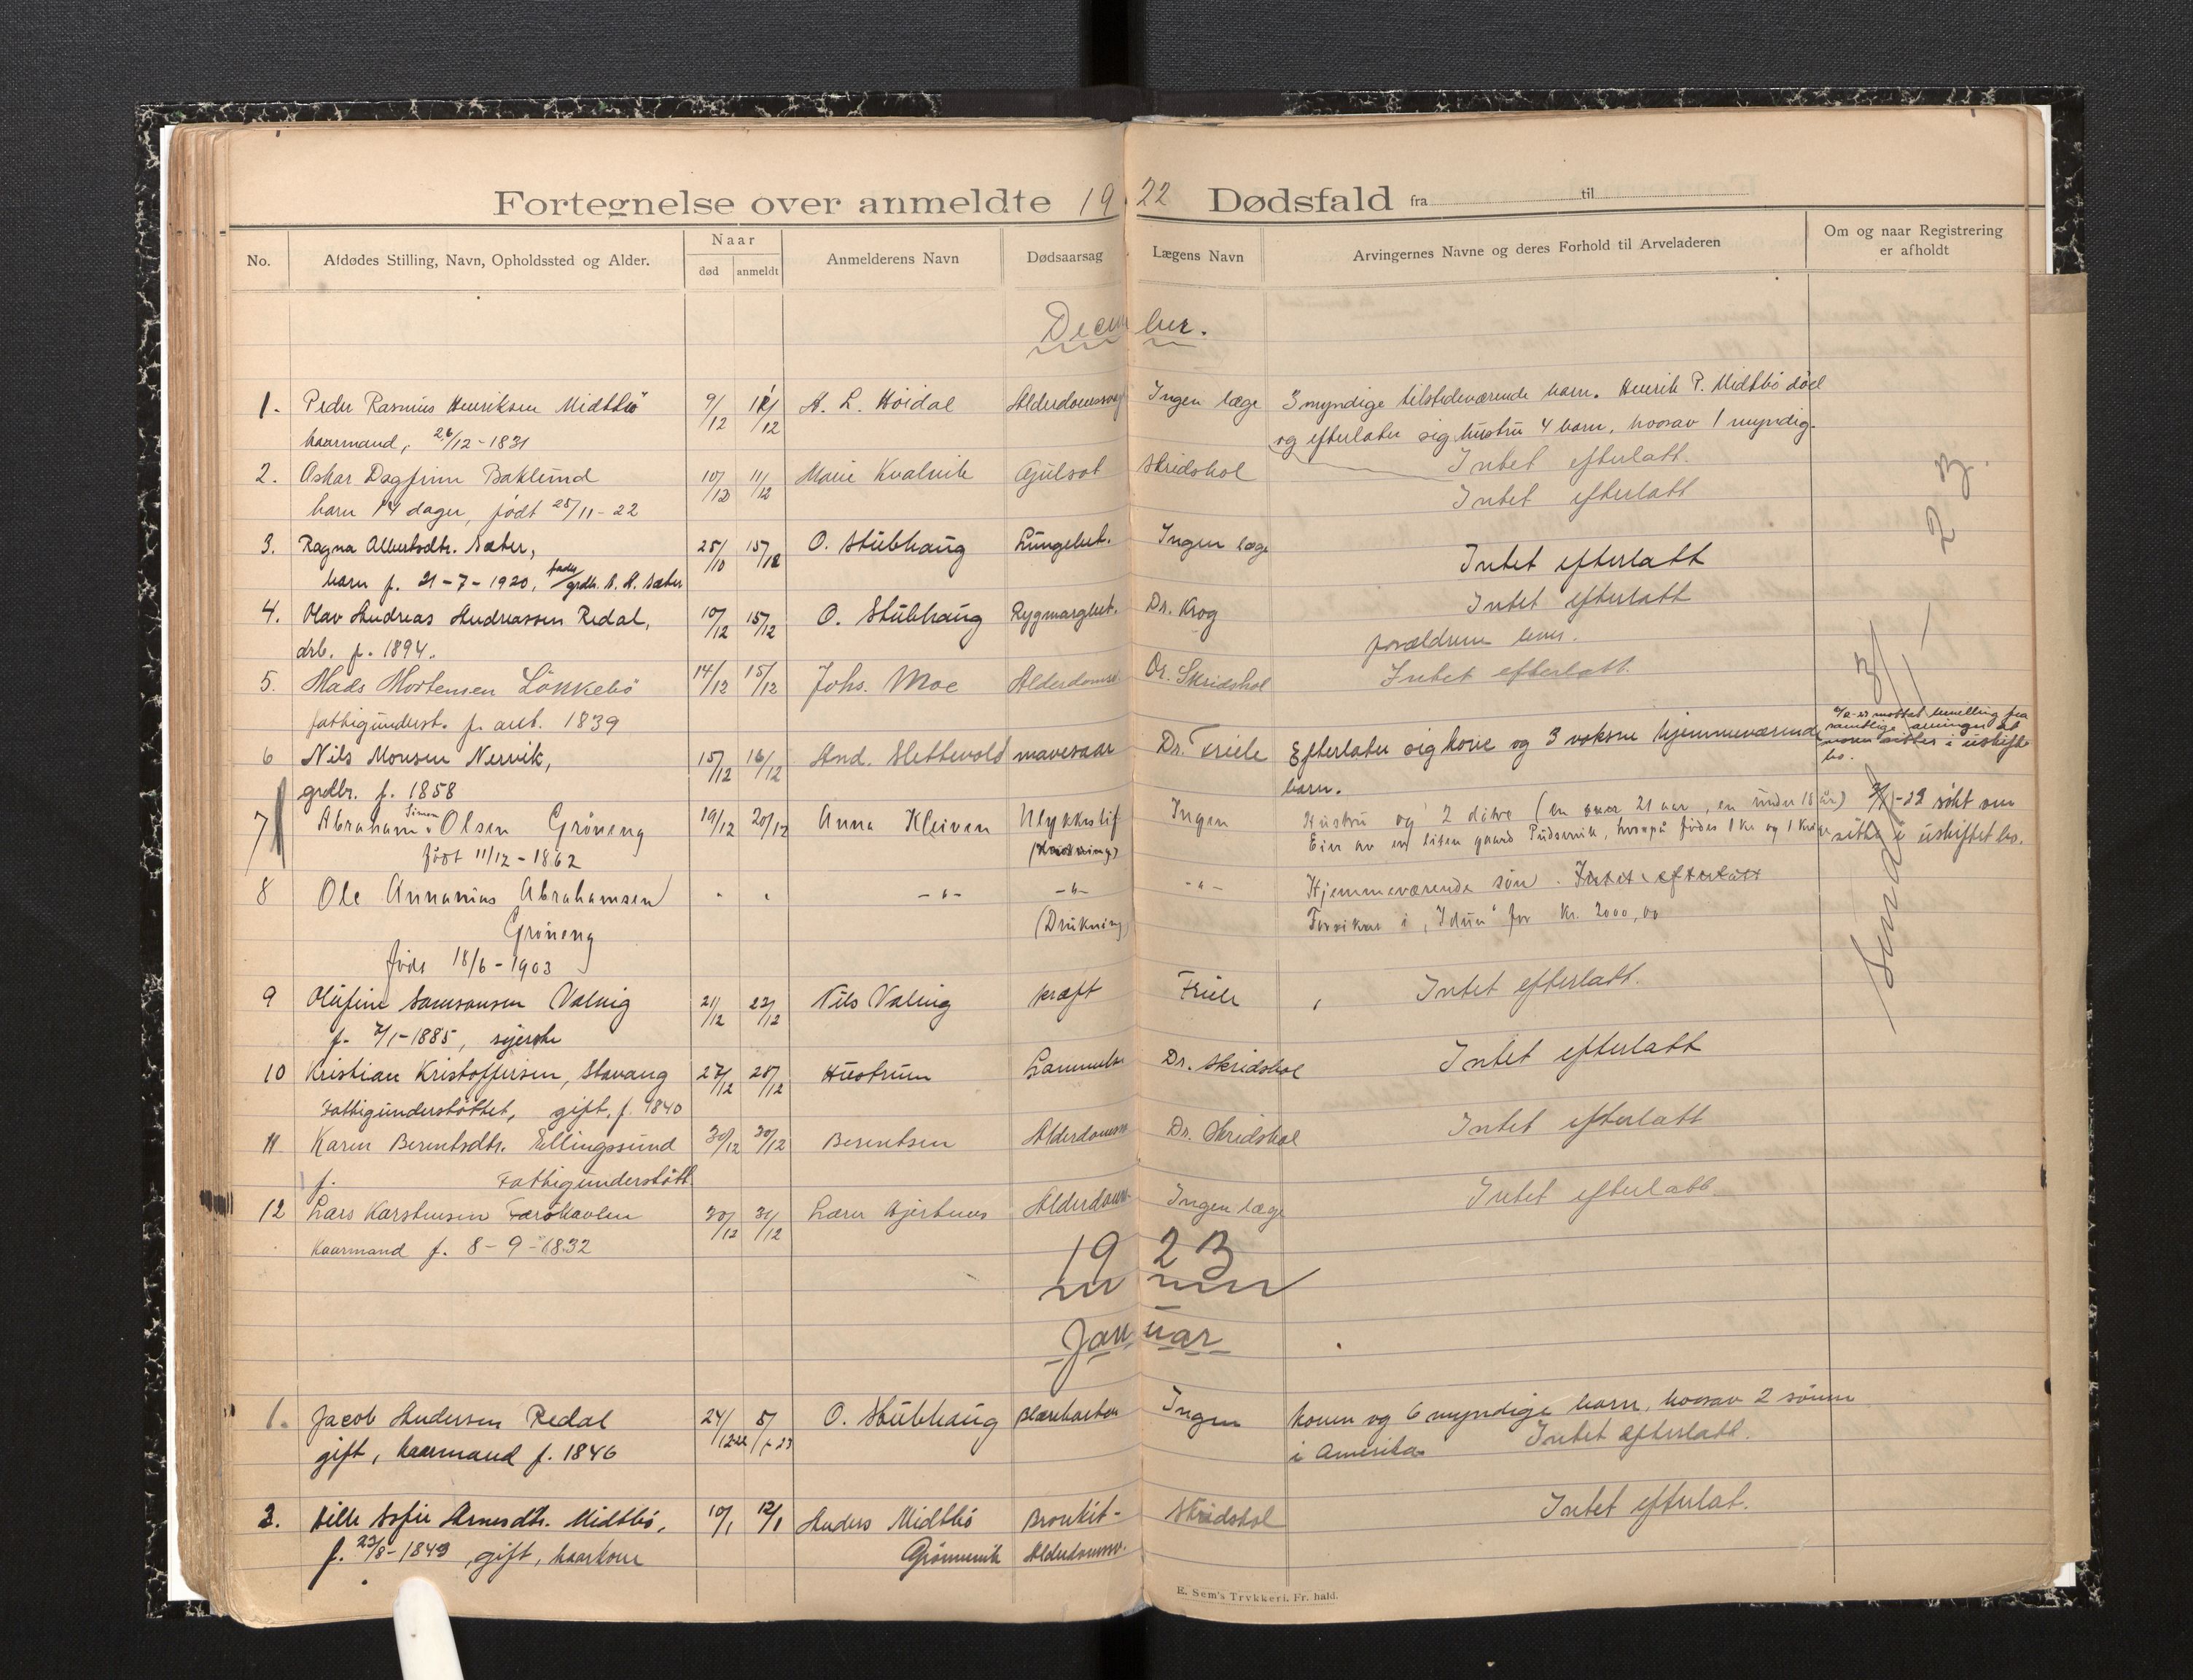 Fortegnelse over anmeldte 1922 Dødsfald fra til
No. Afdødes Stilling, Navn, Opholdssted og Alder. Naar død anmeldt Anmelderens Navn Dødsaarsag Lægens Navn Arvingernes Navne og deres Forhold til Arveladeren Om og naar Registrering er afholdt
December.
1. Peder Rasmus Henriksen Midtbö 9/12 11/12 A. L. Höidal Alderdomssvag Ingen læge 3 myndige tilstedeværende barn. Henrik P. Midtbö död
kaarmand, 26/12-1831 og efterlater sig hustru 4 barn, hvorav 1 myndig.
Intet efterlatt.
2. Oskar Dagfinn Baklund 10/12 11/12 Marie Kvalvik Gulsot Skridshol
barn 14 dager, født 25/11-22 Intet efterlatt
3. Ragna Albertsdtr. Sæter, 25/10 15/12 O. Stubhaug Lungebet. Ingen læge Intet efterlatt
barn f. 21-7-1920, fader grdbr. A. H. Sæter
4. Olav Andreas Andreassen Redal, 10/12 15/12 O. Stubhaug Rygmargbet. Dr. Krog Intet efterlatt
arb. f. 1894. forældrene lever.
5. Mads Mortensen Lökkebö 14/12 15/12 Johs. Moe Alderdomss. Dr. Skridshol Intet efterlatt.
fattigunderst. f. 1839
6 Nils Monsen Nervik, 15/12 16/12 And. Slettevold mavesaar Dr. Friele Efterlater sig kone og 3 voksne hjemmeværende
mottat samtlige arvinger at sitter i uskifte bo.
grdbr. f. 1858 barn.
7 Abraham Simon Olsen Gröneng 19/12 20/12 Anna Kleiven Ulykkestif Ingen Hustru og 2 døtre (en over 21 aar, en under 18 år) -23 søkt om
født 11/12-1862 (Drukning) Eier av en liten gaard, hvorpå födes 1 ku og sitte i uskiftet bo.
8 Ole Annanias Abrahamsen - " - - " - - " - Hjemmeværende sön. Intet efterlatt
Gröneng (Drukning) Forsikret i „Idun" for Kr. 2000,00
föds 18/6-1903
9 Olufine Samsonsen Valvig 21/12 22/12 Nils Valvig kræft Friele Intet efterlatt.
f. 7/1-1885, syerske
10 Kristian Kristoffersen, Stavang 27/12 28/12 Hustruen Lammelse Dr. Skridshol Intet efterlatt
Fattigunderstöttet, gift, f. 1840
11 Karen Berentsdtr. Ellingssund 30/12 30/12 Berentsen Alderdomssv. Dr. Skridshol Intet efterlatt
f. Fattigunderstött.
12 Lars Karstensen Færöhavlen 30/12 31/12 Lærer Hjertenes Alderdoms. Ingen læge Intet efterlatt
kaarmand f. 8-9-1832
1923
Januar
1. Jacob Andersen Redal 24/12-22 5/1-23 O. Stubhaug Blærekatar Ingen konen og 6 myndige barn, hvorav 2 sönner
gift, kaarmand f. 1846 i Amerika. Intet efterlatt.
2. Hille Sofie Arnesdtr. Midtbö, 10/1 12/1 Anders Midtbö Bronkit- Skridshol Intet efterlat.
f. 23/8-1849, gift, kaarkone Grönnevik Alderdomssv.
E. Sem's Trykkeri, Fr. hald.